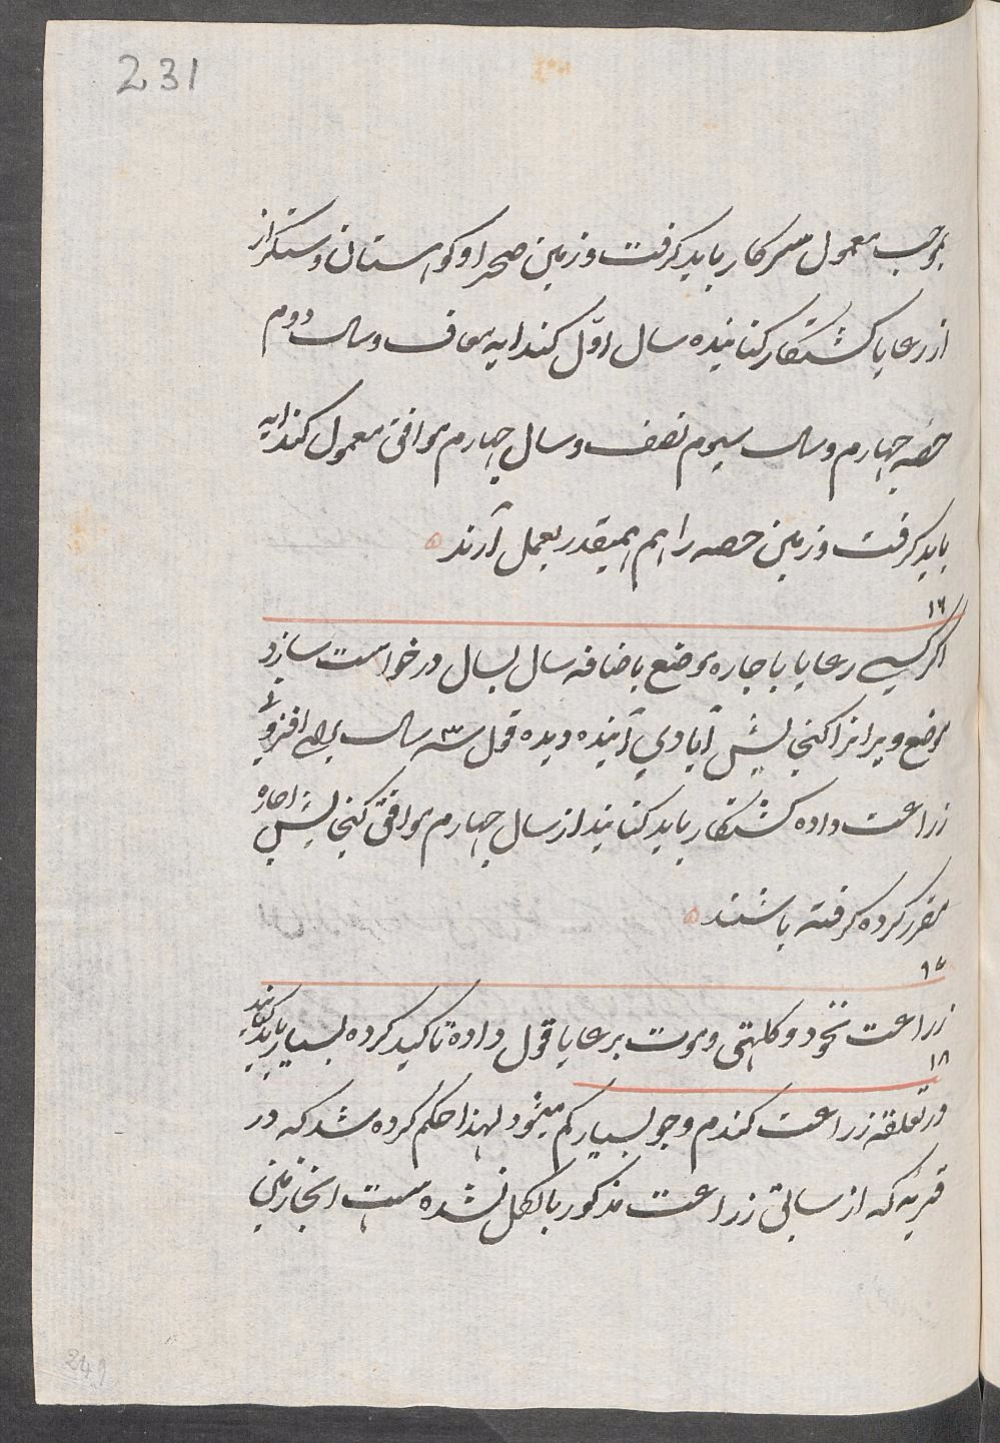 231
بموجب معمول سرکار باید گرفت و زمین صحرا و کوهستان و سنگزار
از رعایا کشتکار کنانیده سال اوّل کندایه معاف و سال دوم
حصه چهارم و سال سیوم نصف و سال چهارم موافق معمول کندایه
باید گرفت و زمین حصه را هم همیقدر بعمل آرند ۵
۱۶
اگر کسی رعایا باجاره موضع باضافه سال بسال درخواست سازد
موضع ویرانرا گنجایش آبادی آینده دیده قول سه ۳ سال برای افزونی
زراعت داده کشتکار باید کنانید از سال چهارم موافق گنجایش اجاره
مقرر کرده گرفته باشند ۵
۱۷
زراعت نخود و کلهتی و موت برعایا قول داده تاکید کرده بسیار باید کنانید
۱۸
در تعلقه زراعت گندم و جو بسیار کم میشود لهذا حکم کرده شد که در
قریه که از سابق زراعت مذکور بالکل نشده است انجا زمین
249